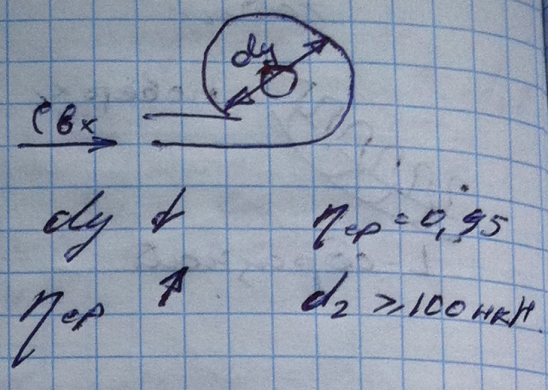 dy
Cвх
dy ↓ ηср = 0,95
ηср ↑ d₂ ≥ 100 мкм.